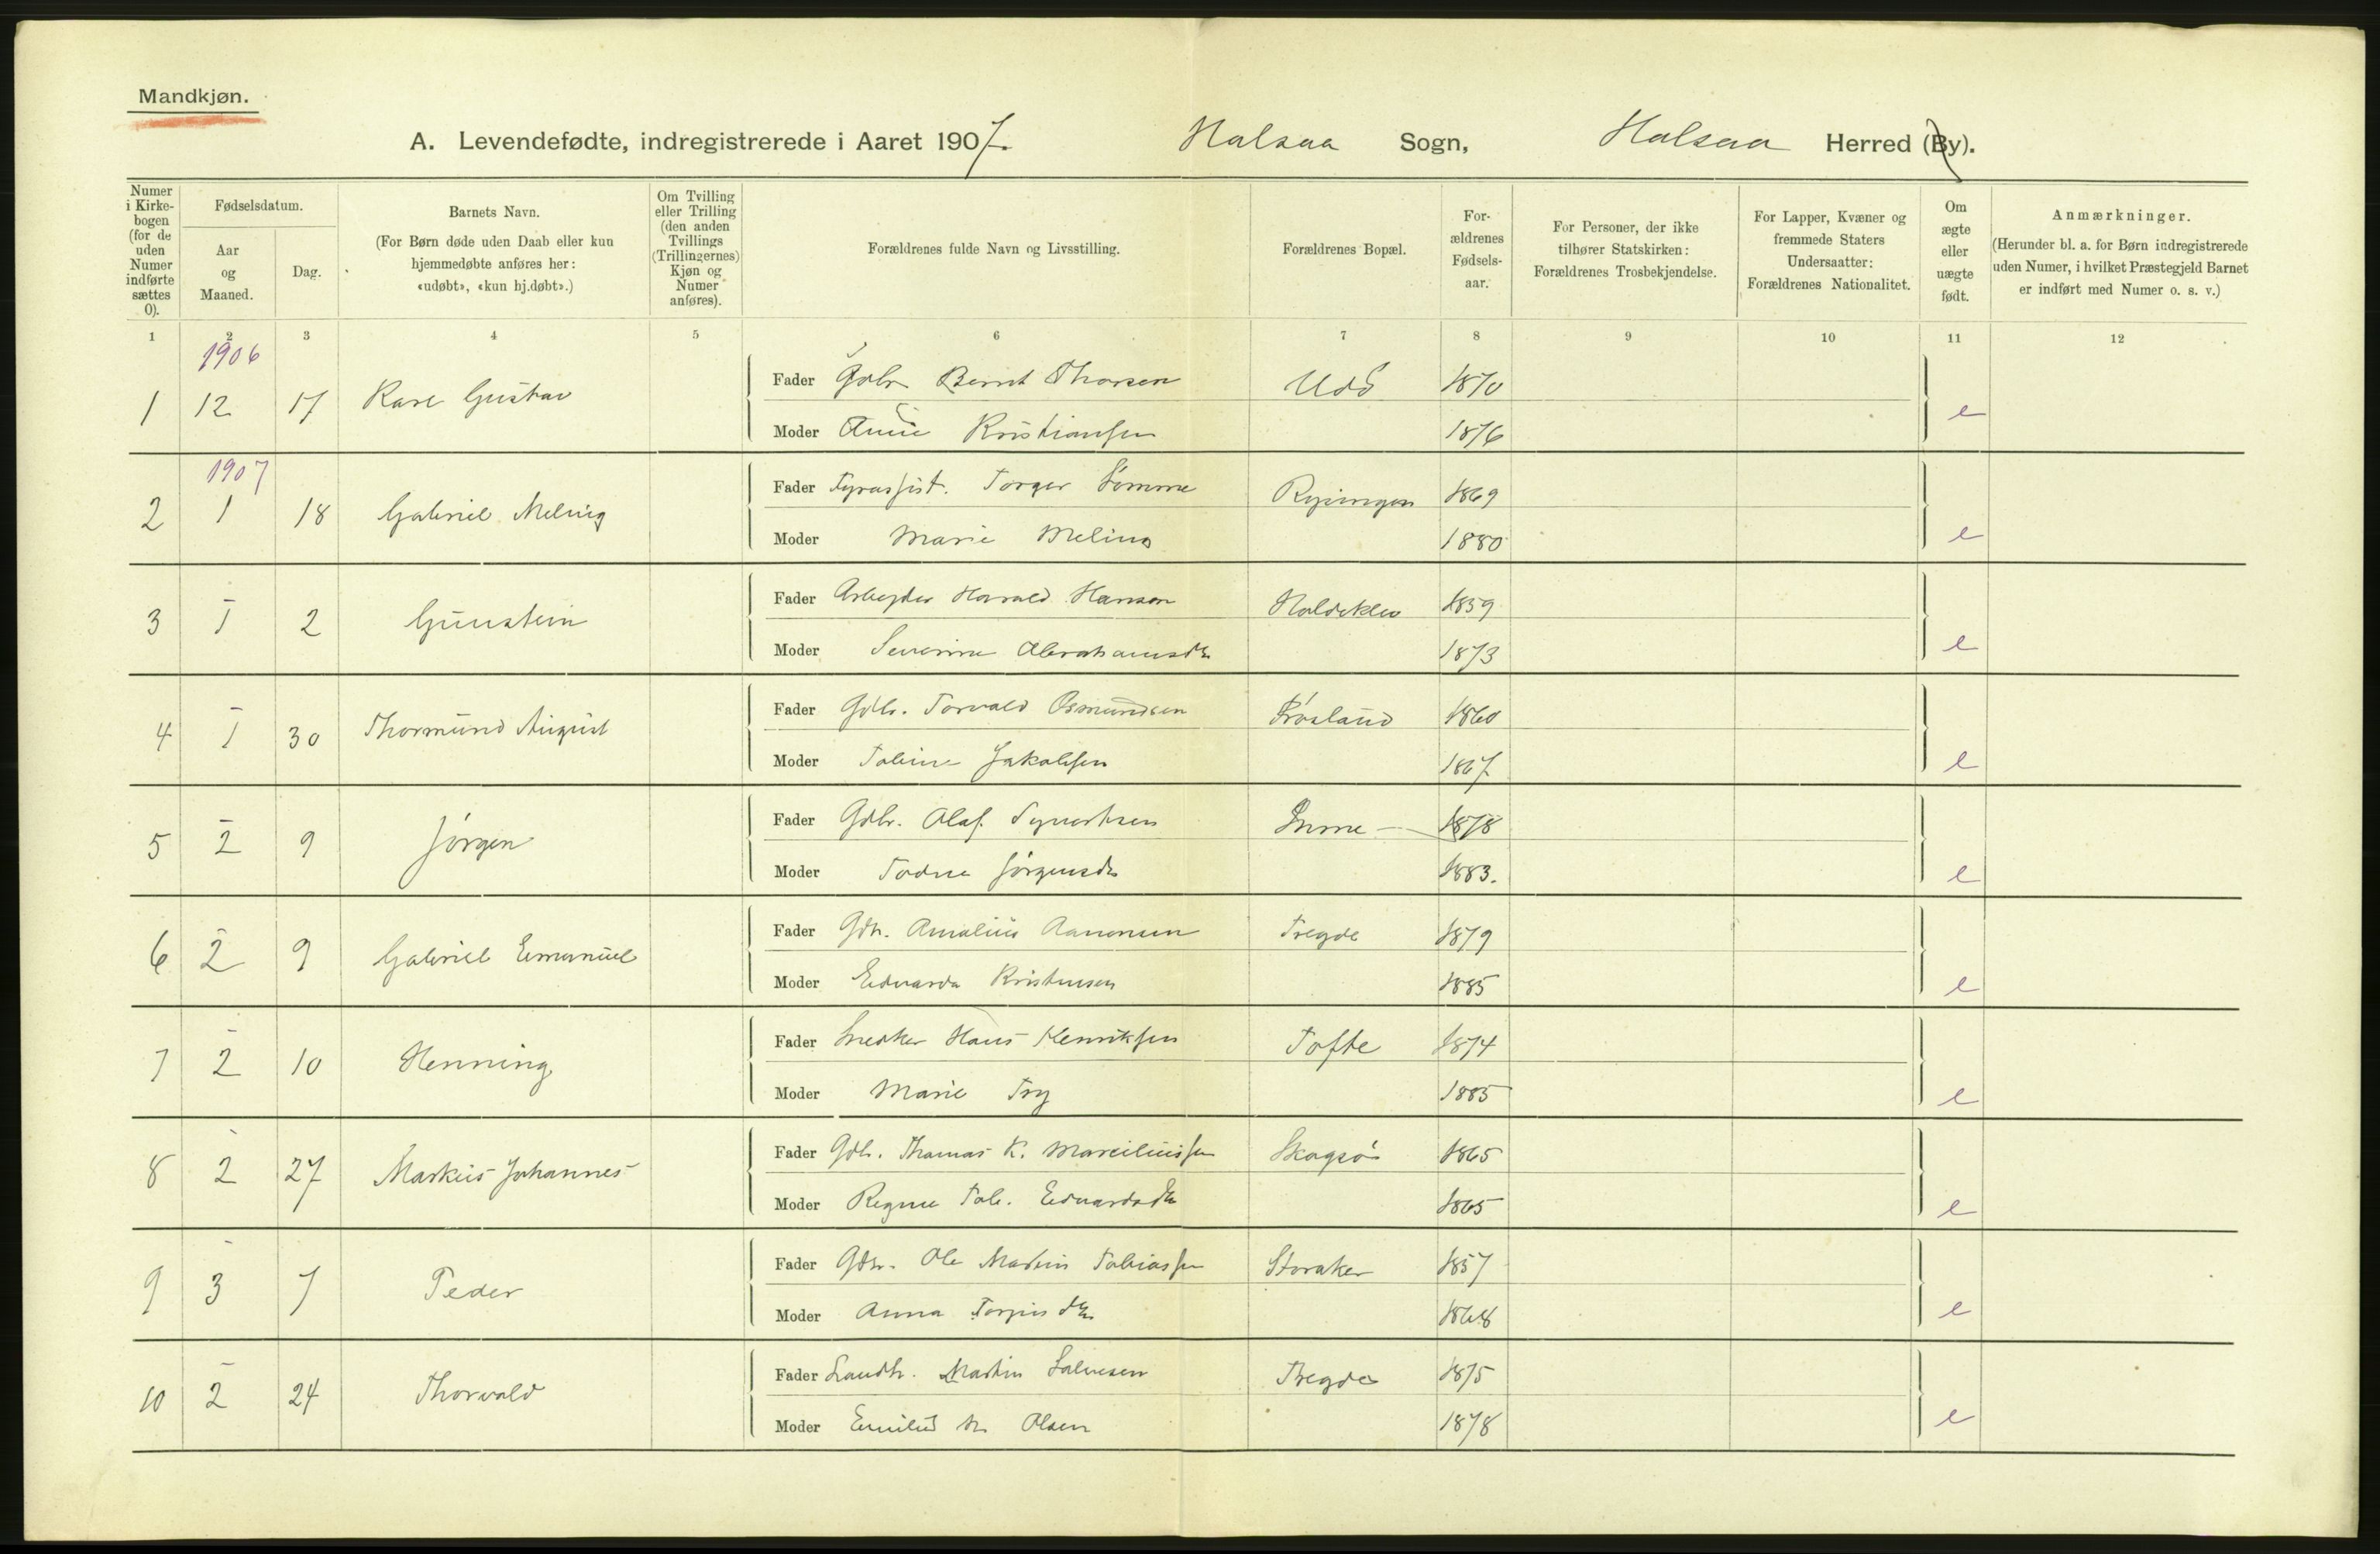 Mandkjøn.
A. Levendefødte, indregistrerede i Aaret 1907. Halsaa Sogn, Halsaa Herred (By).
Numer i Kirkebogen (for de uden Numer indførte sættes 0).
Fødselsdatum.
Aar og Maaned.
Dag.
Barnets Navn.
(For Børn døde uden Daab eller kun hjemmedøbte anføres her: «udøbt», «kun hj.døbt».)
Om Tvilling eller Trilling (den anden Tvillings (Trillingernes) Kjøn og Numer anføres).
Forældrenes fulde Navn og Livsstilling.
Forældrenes Bopæl.
Forældrenes Fødselsaar.
For Personer, der ikke tilhører Statskirken: Forældrenes Trosbekjendelse.
For Lapper, Kvæner og fremmede Staters Undersaatter: Forældrenes Nationalitet.
Om ægte eller uægte født.
Anmærkninger.
(Herunder bl. a. for Børn indregistrerede uden Numer, i hvilket Præstegjeld Barnet er indført med Numer o. s. v.)
1 2 3 4 5 6 7 8 9 10 11 12
1906
1 12 17 Kare Gustav Fader Gdbr Bernt Thorsen Udö 1870
Moder Anne Kristiansen 1876 e
1907
2 1 18 Gabriel Meling Fader Fyrassist. Torger Sømme Ryvingen 1869
Moder Marie Meling 1880 e
3 1 2 Gunstein Fader Arbeyder Harald Hansen 1859
Moder Severine Abrahamsdtr 1873 e
4 1 30 Thormund August Fader Gdbr. Torvald Osmundsen 1860
Moder Tobine Jakobsen 1867 e
5 2 9 Jörgen Fader Gdbr. Olaf Syvertsen 1878
Moder Todne Jörgensdtr 1883. e
6 2 9 Gabriel Emanuel Fader Gdbr. Amalius Aanonsen Tregde 1879
Moder Edvarda Kristensen 1885 e
7 2 10 Henning Fader Snedker Hans Henriksen Tofte 1874
Moder Marie Try 1885 e
8 2 27 Markus Johannes Fader Gdbr. Thomas K. Marciliussen Skogsö 1865
Moder Regine Tob. Edvardsdtr 1865 e
9 3 7 Peder Fader Gdbr. Ole Martin Tobiassen Storaker 1857
Moder Anna Torjusdtr 1868 e
10 2 24 Thorvald Fader Landh. Martin Salvesen Tregde 1875
Moder Emilie M. Olsen 1878 e